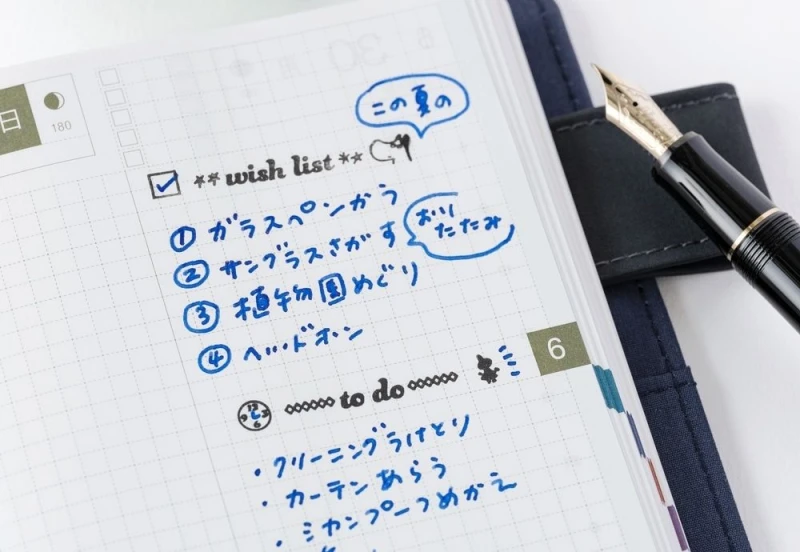 日
180
この夏の
** wish list **
① ガラスペンかう
② サングラスさがす
おりたたみ
③ 植物園めぐり
④ ヘッドホン
6
to do
・クリーニングうけとり
・カーテンあらう
・シャンプーつめかえ